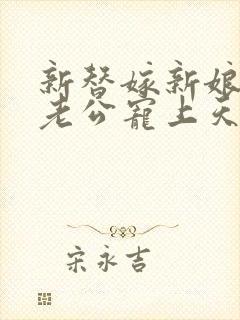 新替嫁新娘
老公宠上天
宋永吉